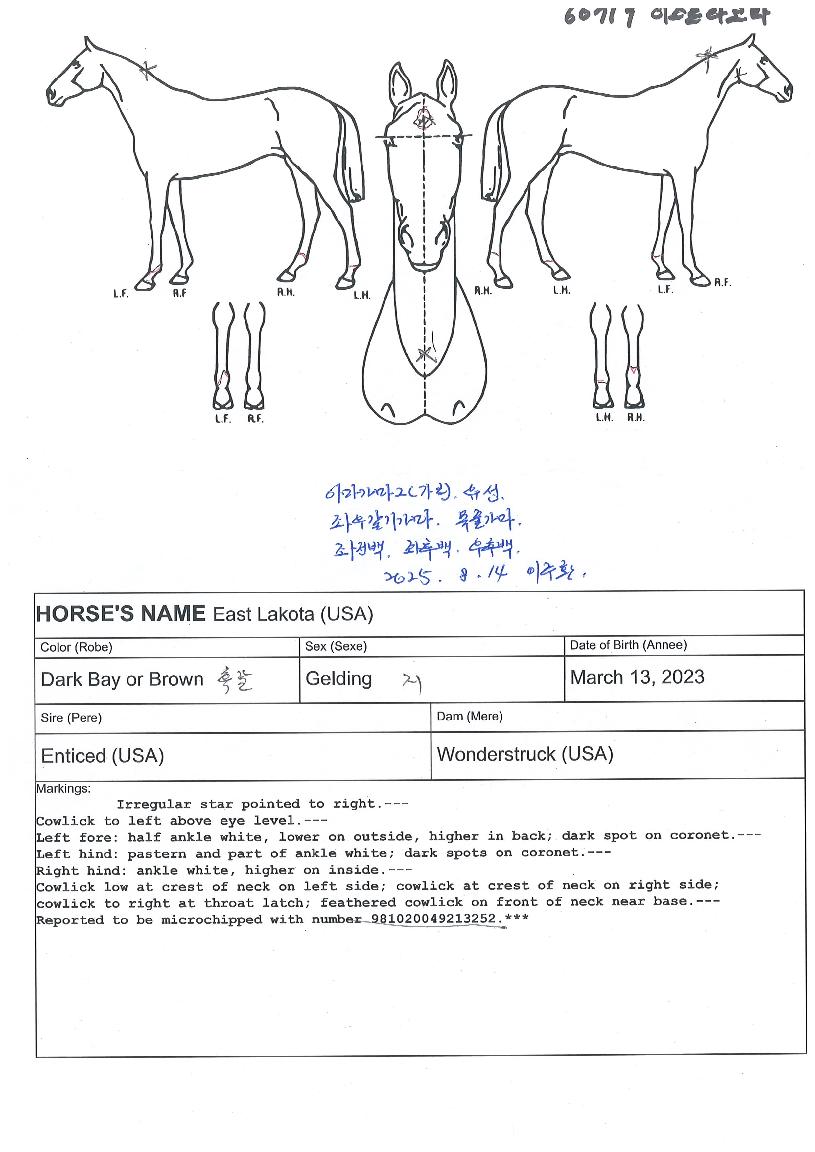 60717 이스트라코타
L.F. R.F R.H. L.H. R.H. L.H. L.F. R.F.
L.F. R.F. L.H. R.H.
이마가마2(가로). 유성.
좌우갈기가마. 목골가마.
좌전백. 좌후백. 우후백.
2025. 8. 14 이주환.
HORSE'S NAME East Lakota (USA)
Color (Robe) Sex (Sexe) Date of Birth (Annee)
Dark Bay or Brown 흑갈 Gelding 거 March 13, 2023
Sire (Pere) Dam (Mere)
Enticed (USA) Wonderstruck (USA)
Markings:
Irregular star pointed to right.---
Cowlick to left above eye level.---
Left fore: half ankle white, lower on outside, higher in back; dark spot on coronet.---
Left hind: pastern and part of ankle white; dark spots on coronet.---
Right hind: ankle white, higher on inside.---
Cowlick low at crest of neck on left side; cowlick at crest of neck on right side;
cowlick to right at throat latch; feathered cowlick on front of neck near base.---
Reported to be microchipped with number 981020049213252.***